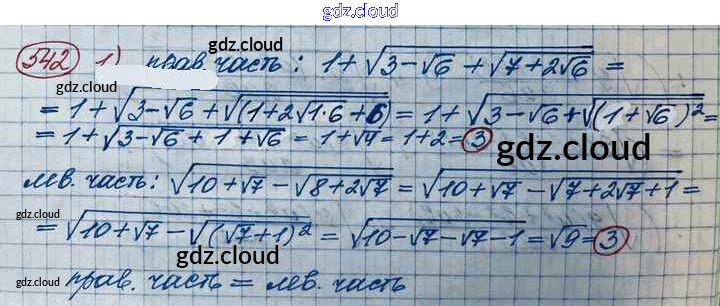 gdz.cloud
542 1) прав. часть : 1+√(3-√6 +√(7+2√6)) =
gdz.cloud
gdz.cloud
= 1+√(3-√6+√(1+2√1·6+6)) = 1+√(3-√6+√(1+√6)²) =
= 1+√(3-√6 + 1+√6) = 1+√4 = 1+2 = 3
gdz.cloud
лев. часть: √(10+√7 -√(8+2√7)) = √(10+√7 -√(7+2√7+1)) =
gdz.cloud
= √(10+√7 -√(√7+1)²) = √(10-√7-√7-1) = √9 = 3
gdz.cloud
gdz.cloud
прав. часть = лев. часть